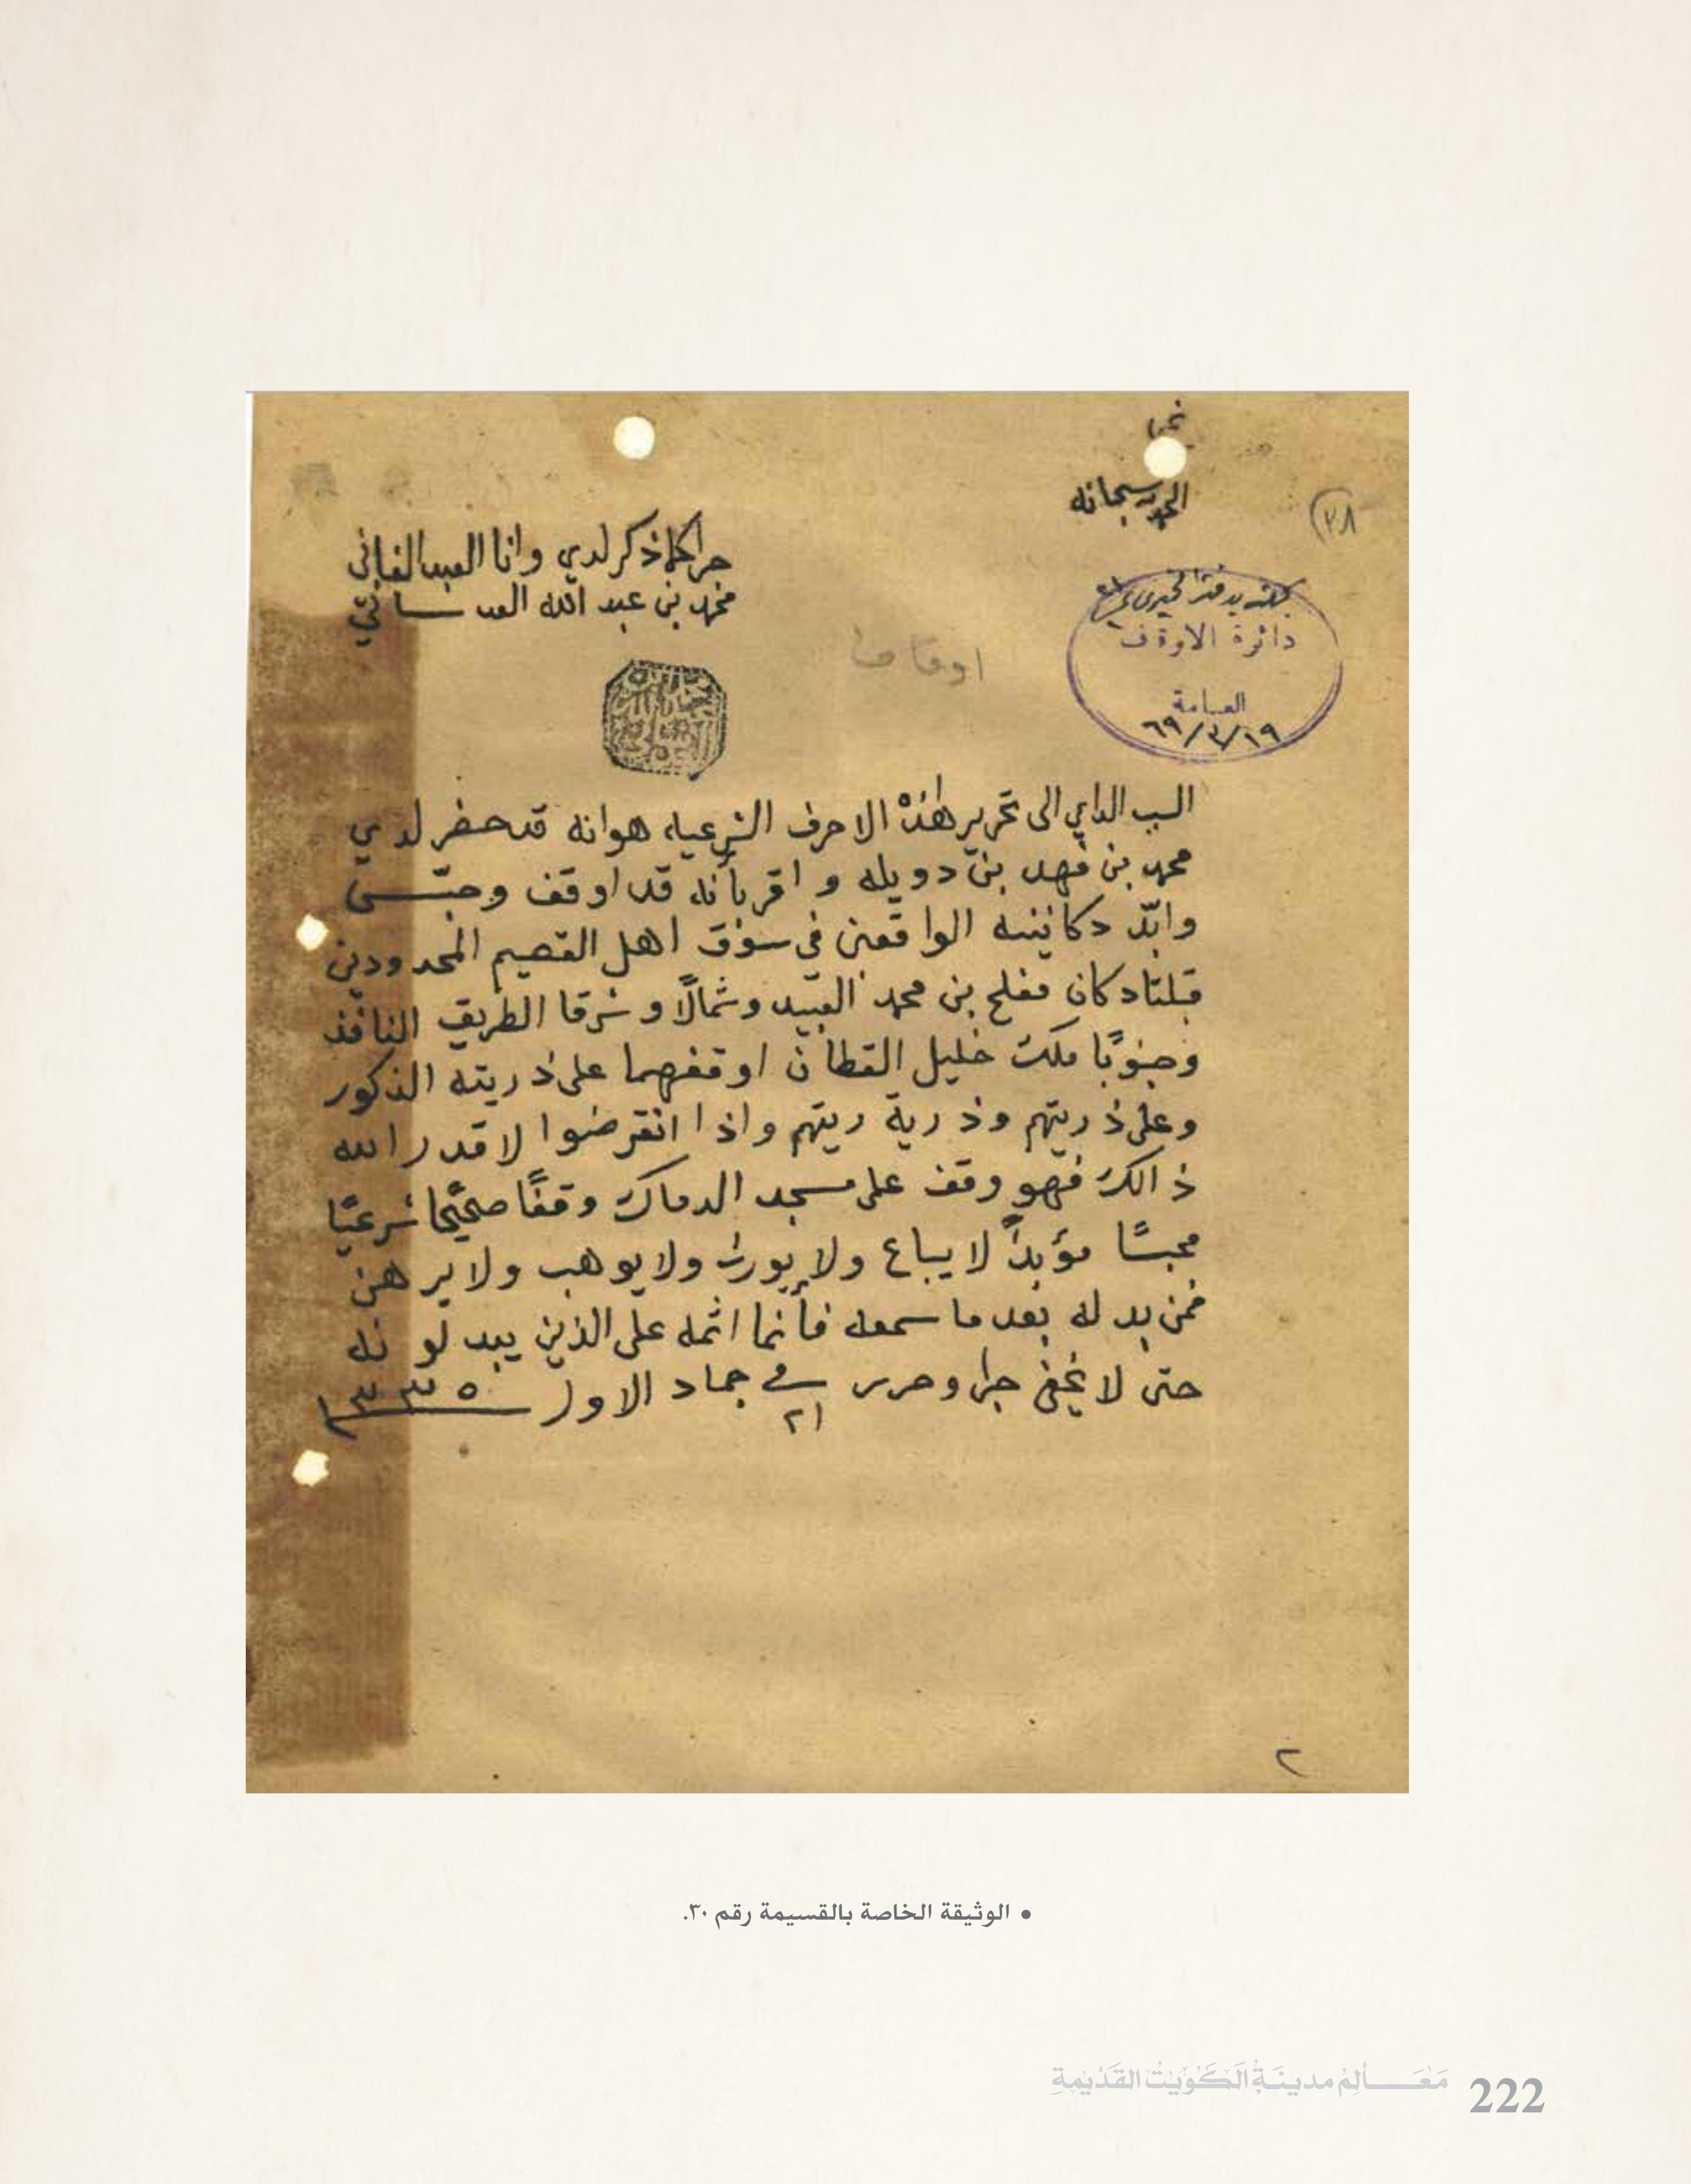 الحمد لله سبحانه
(٢٨
جرا كلما ذكر لدي وانا العبد الفاني
محمد بن عبد الله العدساني
دائرة الاوقاف
العامة
٦٩/٣/١٩
اوقاف
السبب الداعي الى تحرير هٰذهْ الاحرف الشرعيه هوانه قد حضر لدي
محمد بن فهد بن دويله و اقر بأنه قد اوقف وحبّس
وابّد دكانينه الواقعين في سوق اهل القصيم المحدودين
قبلتا دكان مفلح بن محمد العبيد وشمالًا و شرقا الطريق النافذ
وجنوبًا ملك خليل القطان اوقفهما على ذريته الذكور
وعلى ذريتهم وذرية ريتهم واذا انقرضوا لا قدر الله
ذالك فهو وقف على مسجد الدماك وقفًا صحيًحا شرعيًا
محبسًا مؤبداً لا يباع ولا يورث ولا يوهب ولا يرهن
فمن بدله بعد ما سمعه فأنما اثمه على الذين يبدلونه
حتى لا يخفى جرا وحرر في ٢١ جماد الاول ١٣٣٥
٢
• الوثيقة الخاصة بالقسيمة رقم ٣٠.
مَعَـــالِمُ مدينَـةِ الكُوَيْتْ القَدْيمةِ 222